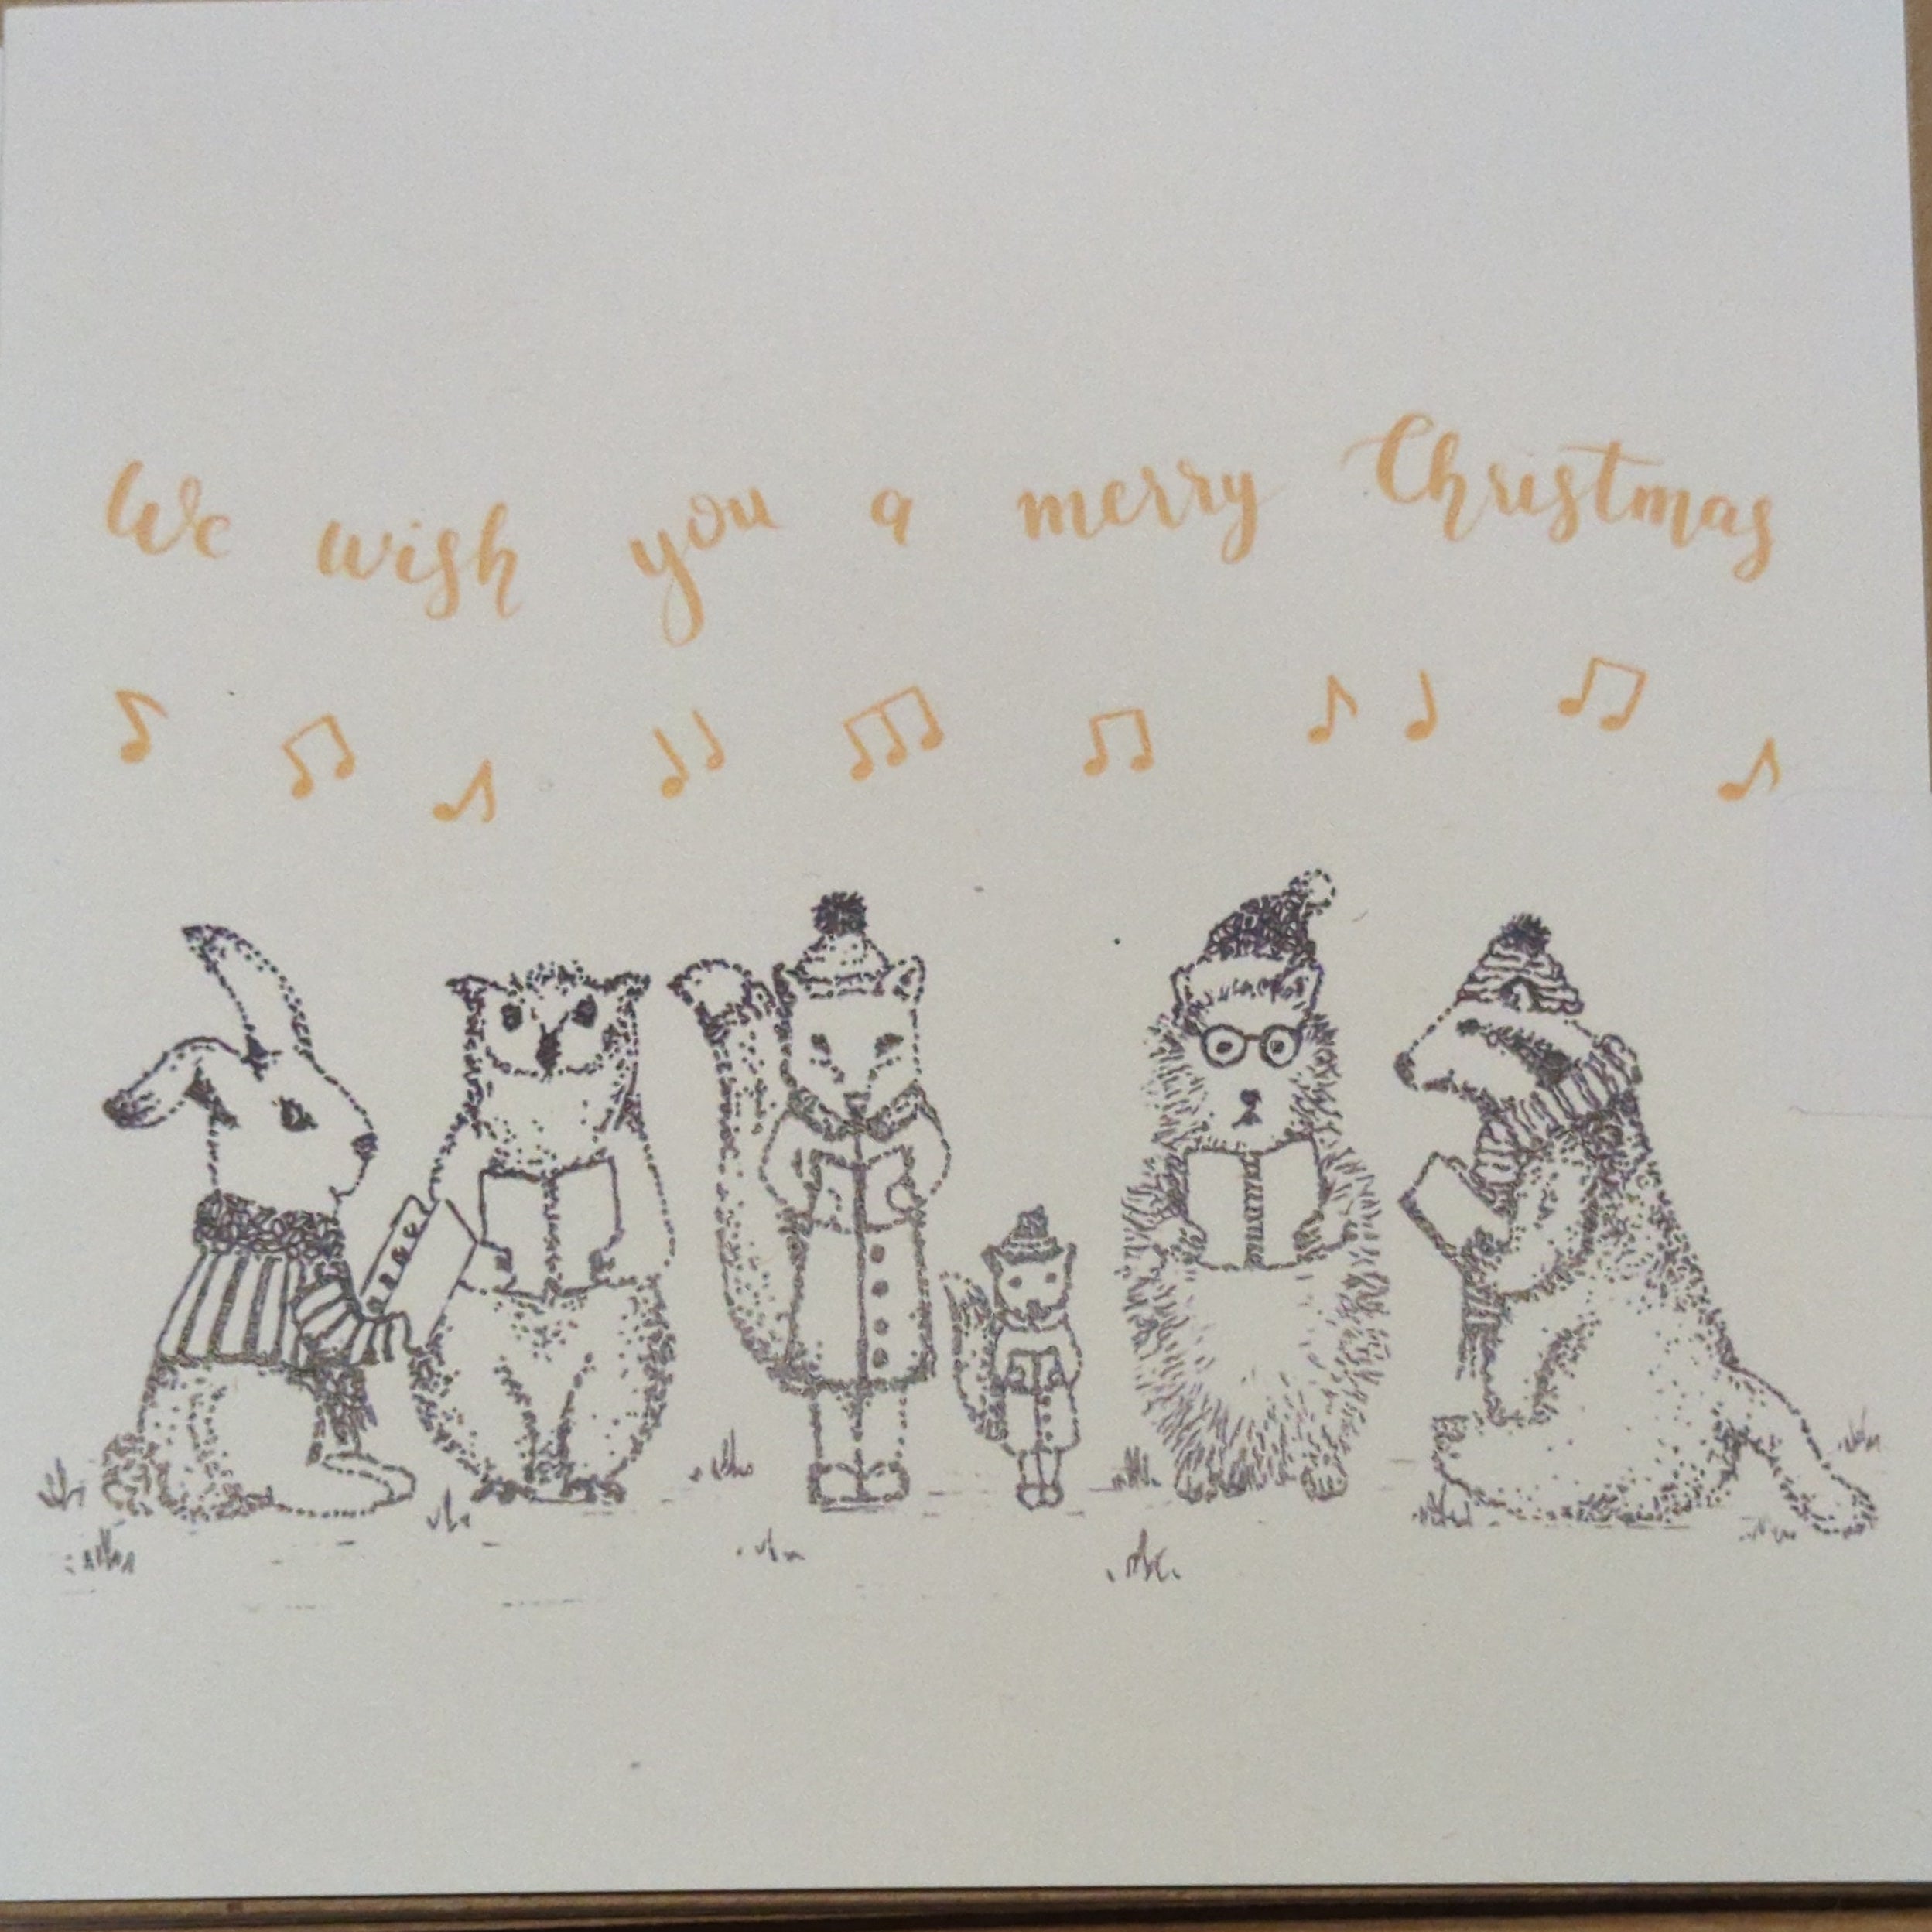 We wish you a merry Christmas